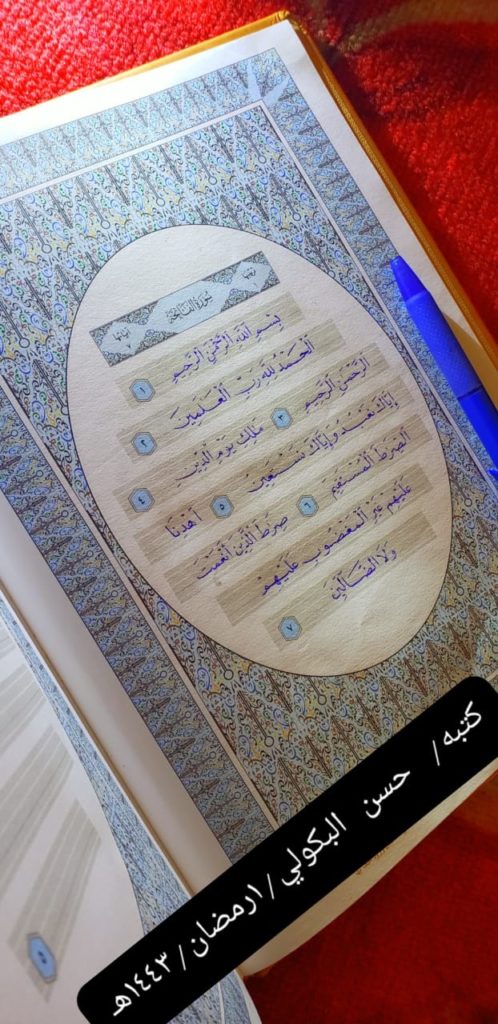 سورة الفاتحة
بِسْمِ اللَّهِ الرَّحْمَٰنِ الرَّحِيمِ ١
الْحَمْدُ لِلَّهِ رَبِّ الْعَالَمِينَ ٢
الرَّحْمَٰنِ الرَّحِيمِ ٣ مَلِكِ يَوْمِ الدِّينِ ٤
إِيَّاكَ نَعْبُدُ وَإِيَّاكَ نَسْتَعِينُ ٥ اهْدِنَا
الصِّرَٰطَ الْمُسْتَقِيمَ ٦ صِرَٰطَ الَّذِينَ أَنْعَمْتَ
عَلَيْهِمْ غَيْرِ الْمَغْضُوبِ عَلَيْهِمْ
وَلَا الضَّالِّينَ ٧
كتبه / حسن البكولي / ١رمضان / ١٤٤٣هـ
٥